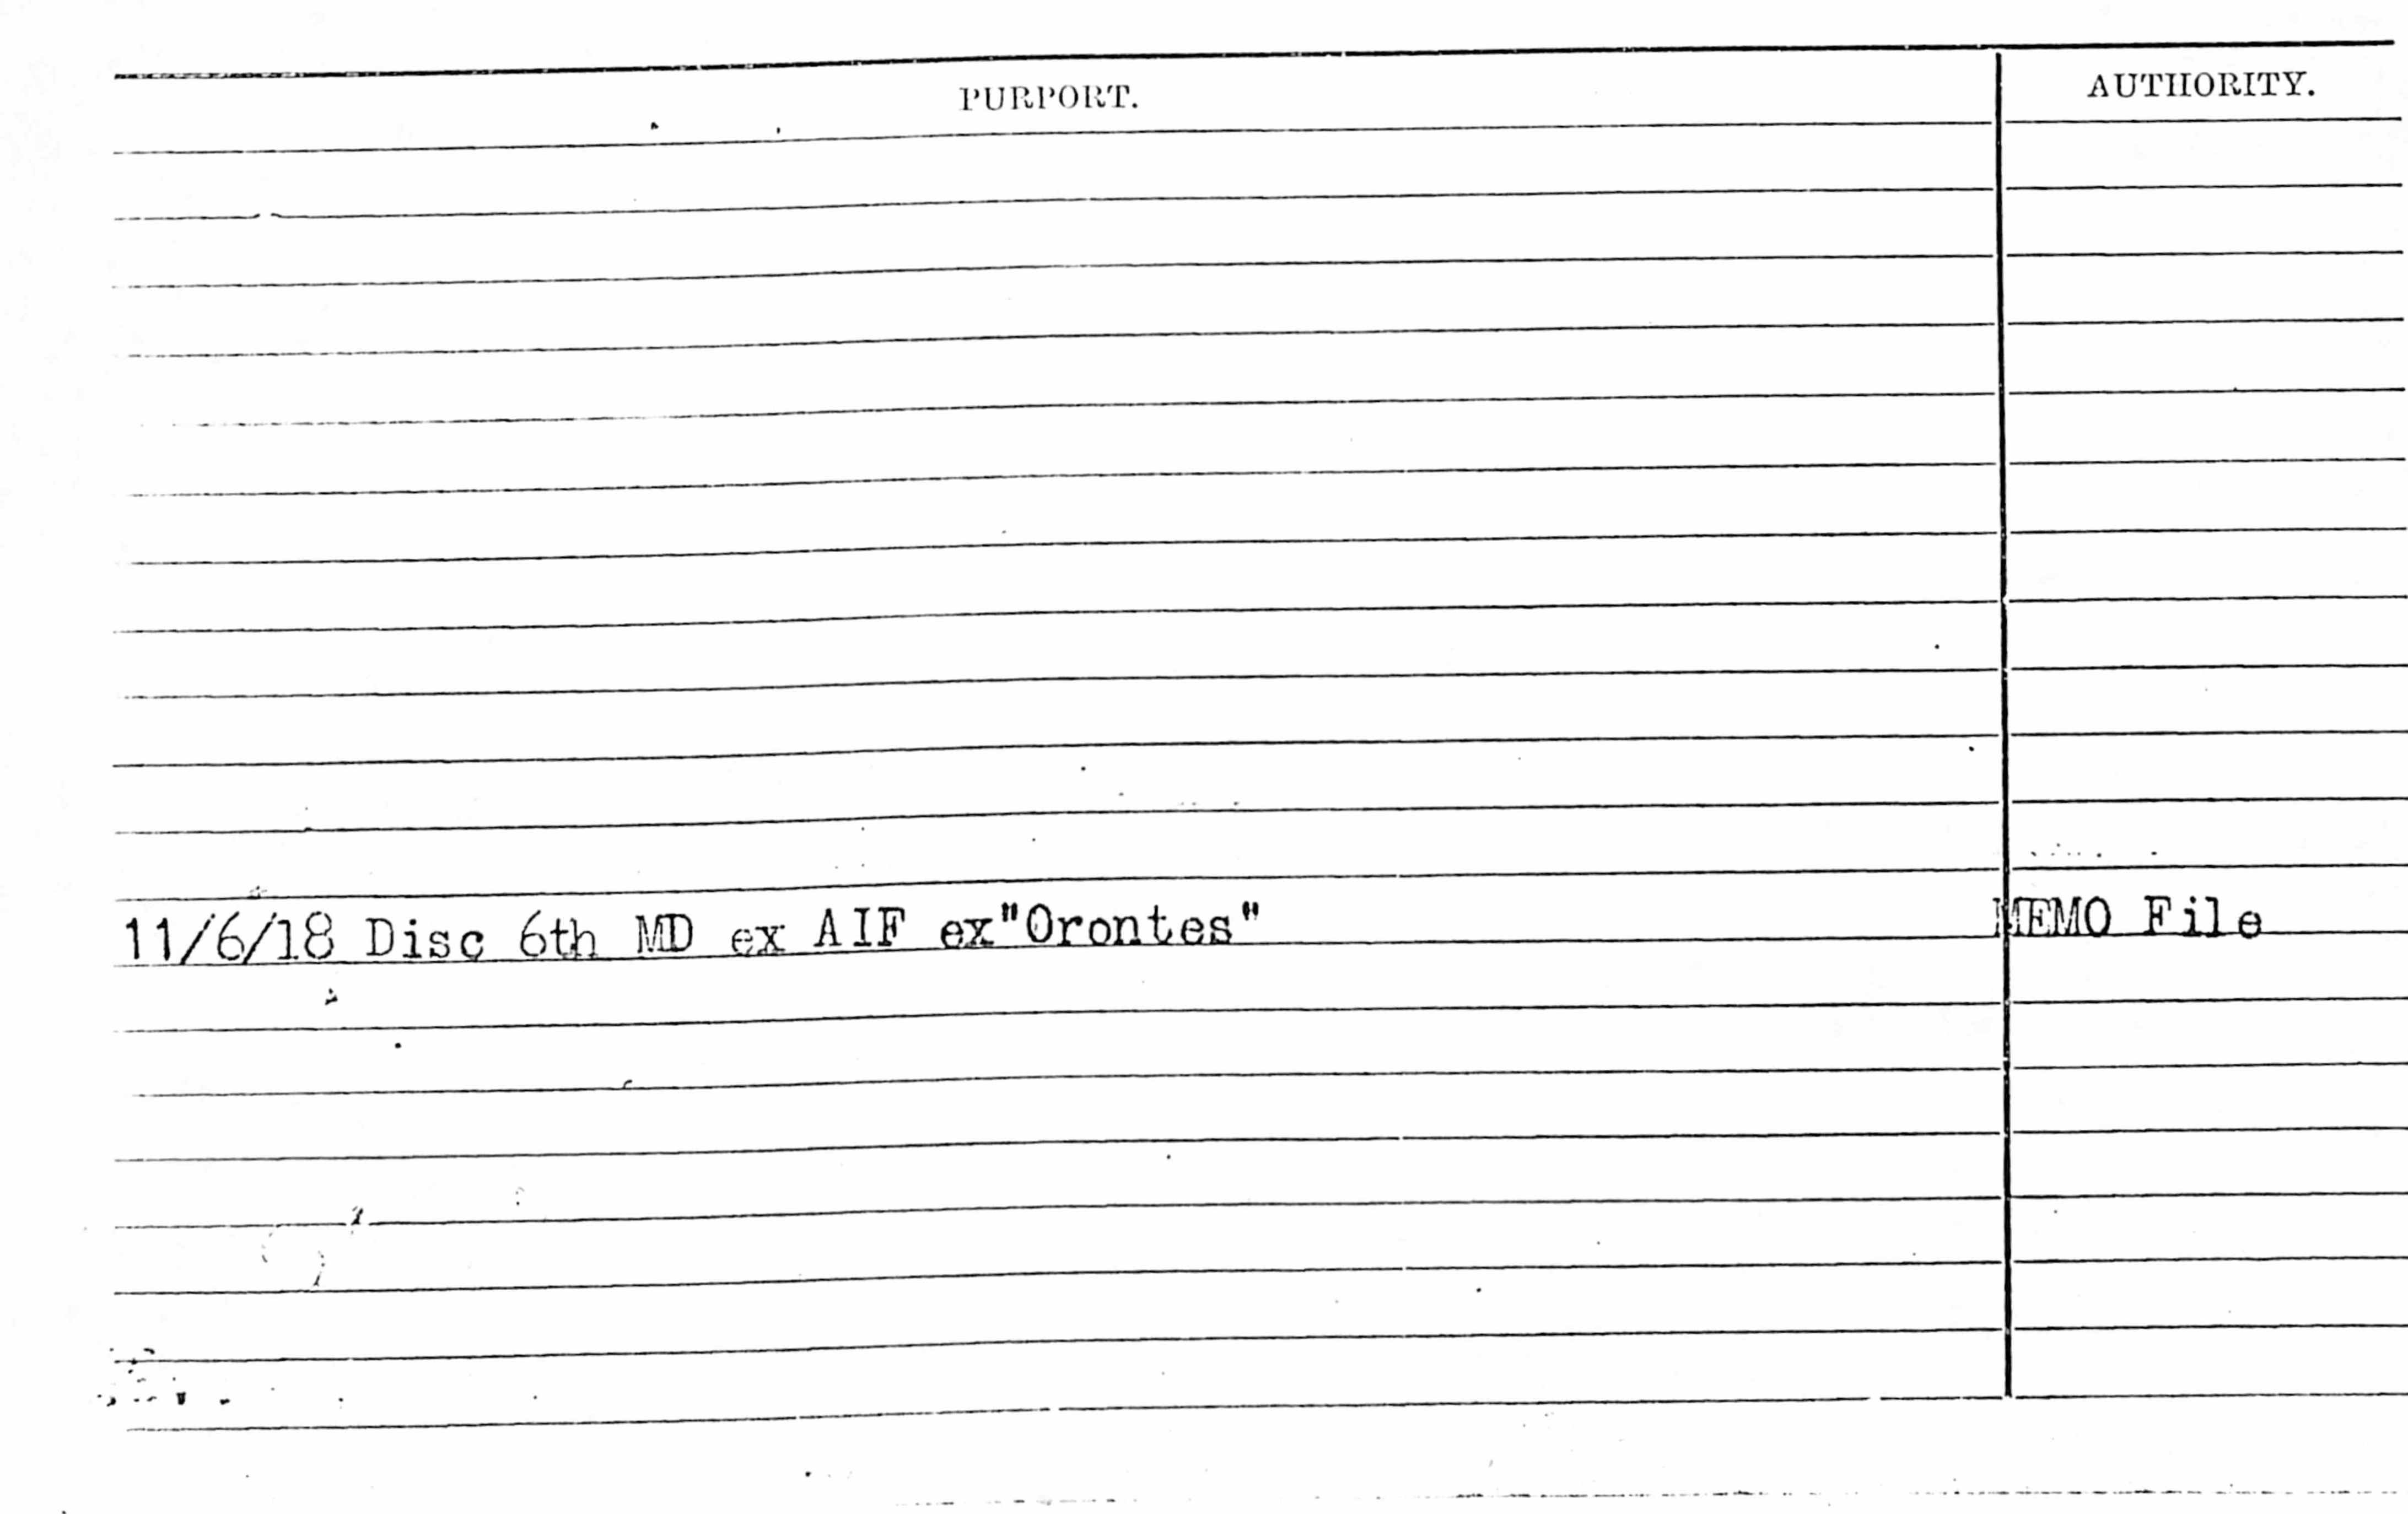 PURPORT. AUTHORITY.
11/6/18 Disc 6th MD ex AIF ex"Orontes" MEMO File